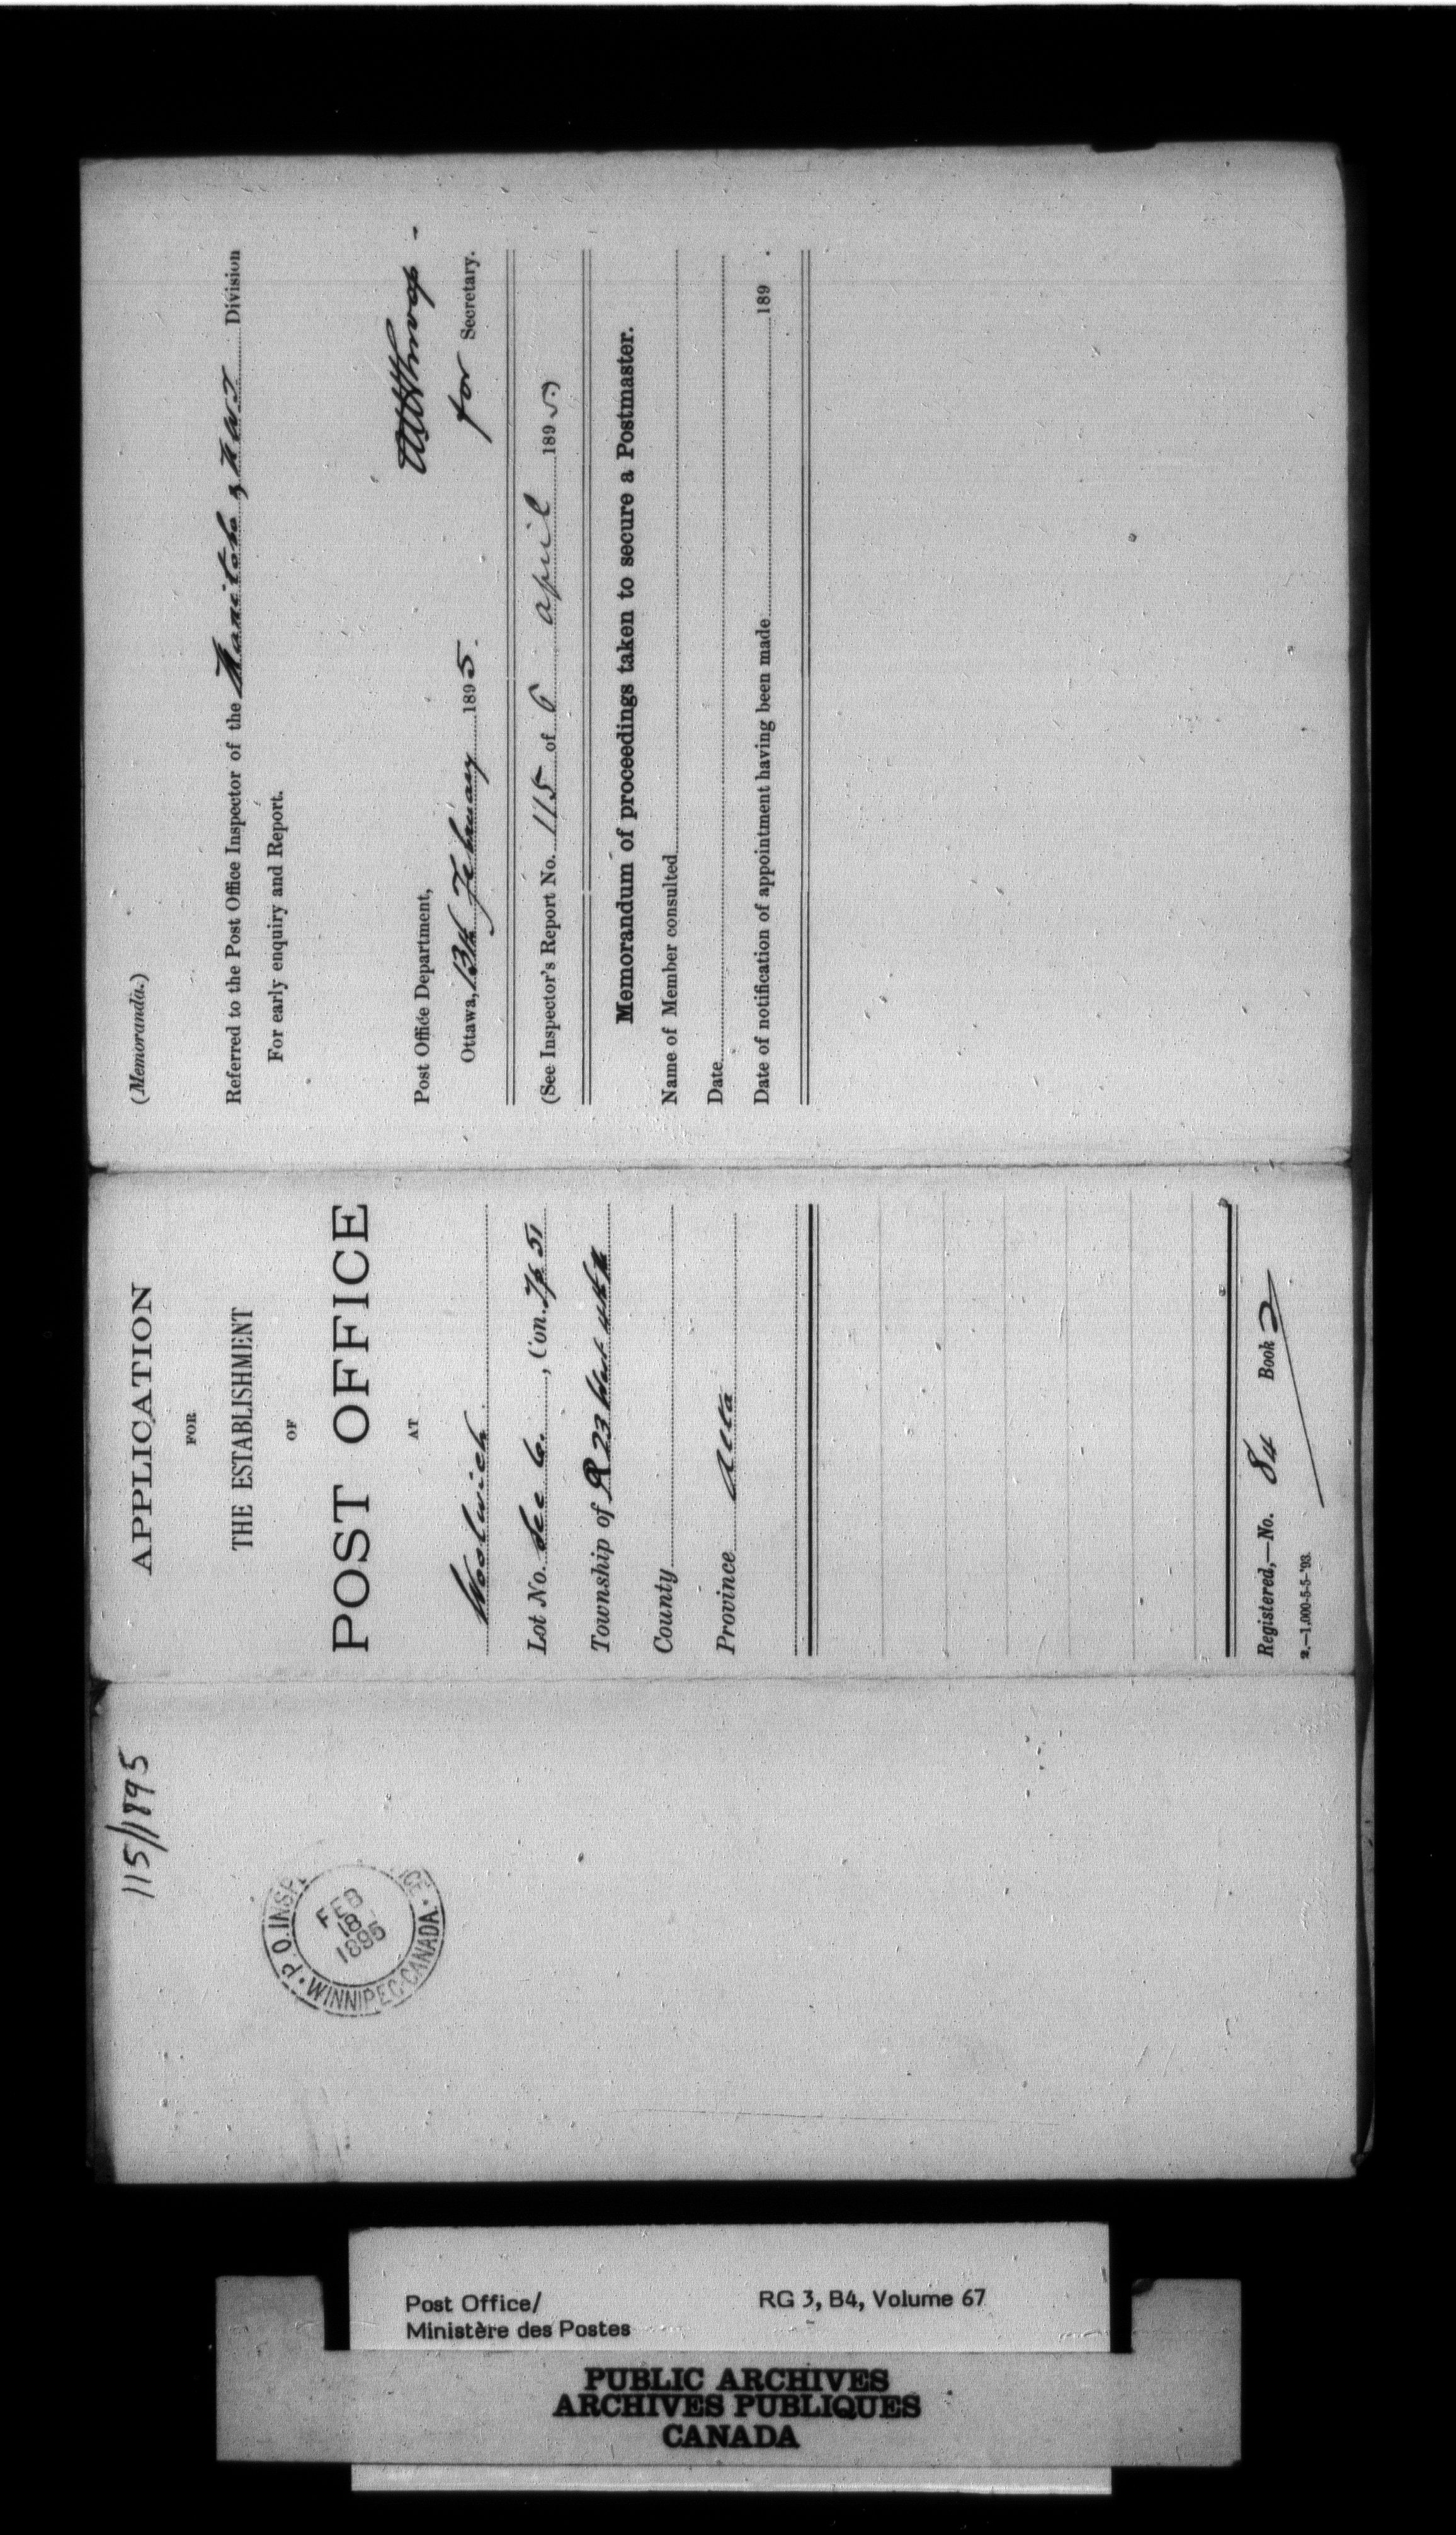 115/1895
P.O. INSP
CE
WINNIPEG-CANADA.
FEB
18
1895
APPLICATION
FOR
THE ESTABLISHMENT
OF
POST OFFICE
AT
Woolwich
Lot No. Sec 6. , Con. Tp 51
Township of R 23 West 4th
County
Province Alta
Registered,—No. 84 Book 2
2.—1,000-5-5-'93.
(Memoranda.)
Referred to the Post Office Inspector of the Manitoba & NWT Division
For early enquiry and Report.
for Secretary.
Post Office Department,
Ottawa, 13th February 1895.
(See Inspector's Report No. 115 of 6 april 1895)
Memorandum of proceedings taken to secure a Postmaster.
Name of Member consulted
Date
Date of notification of appointment having been made 189 .
Post Office/
Ministère des Postes
RG 3, B4, Volume 67
PUBLIC ARCHIVES
ARCHIVES PUBLIQUES
CANADA